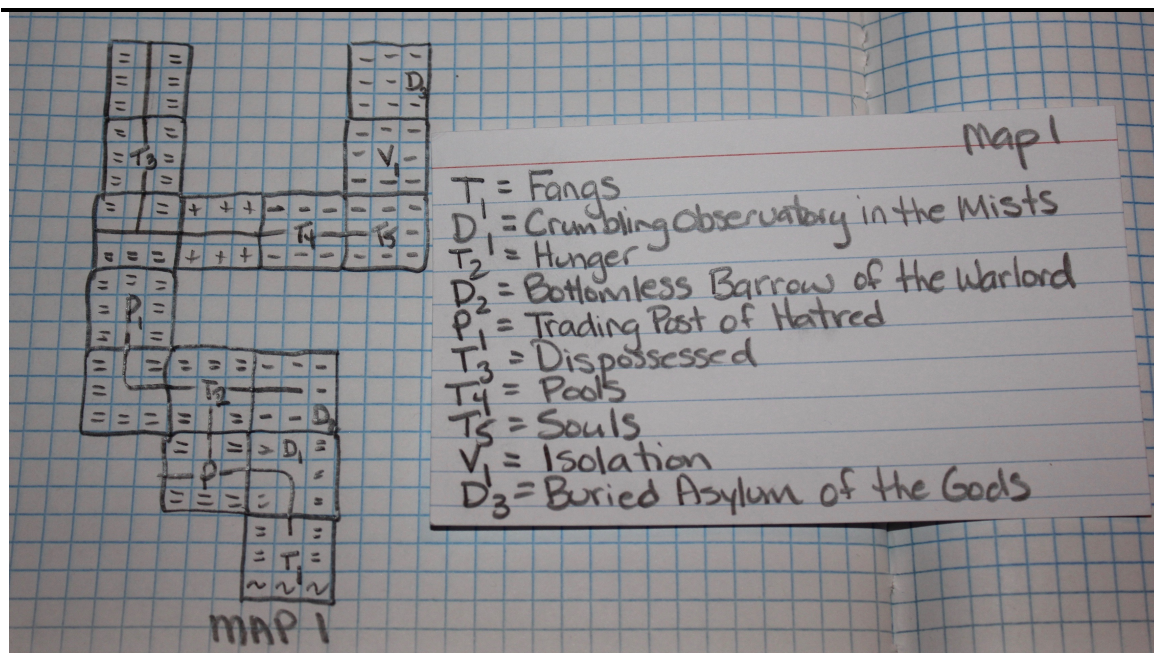 D3
T3
V1
T4
T5
P1
T2
D2
D1
P
T1
MAP 1
Map 1
T1 = Fangs
D1 = Crumbling Observatory in the Mists
T2 = Hunger
D2 = Bottomless Barrow of the Warlord
P1 = Trading Post of Hatred
T3 = Dispossessed
T4 = Pools
T5 = Souls
V1 = Isolation
D3 = Buried Asylum of the Gods